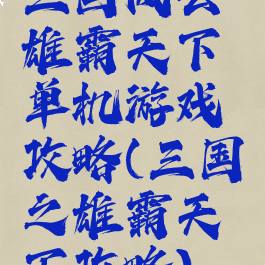 三国风云
雄霸天下
单机游戏
攻略(三国
之雄霸天
下攻略)